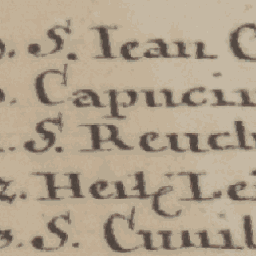 . S. Iean C
. Capucin
. S. Reuch
2. Heil Lei
3. S. Cunib